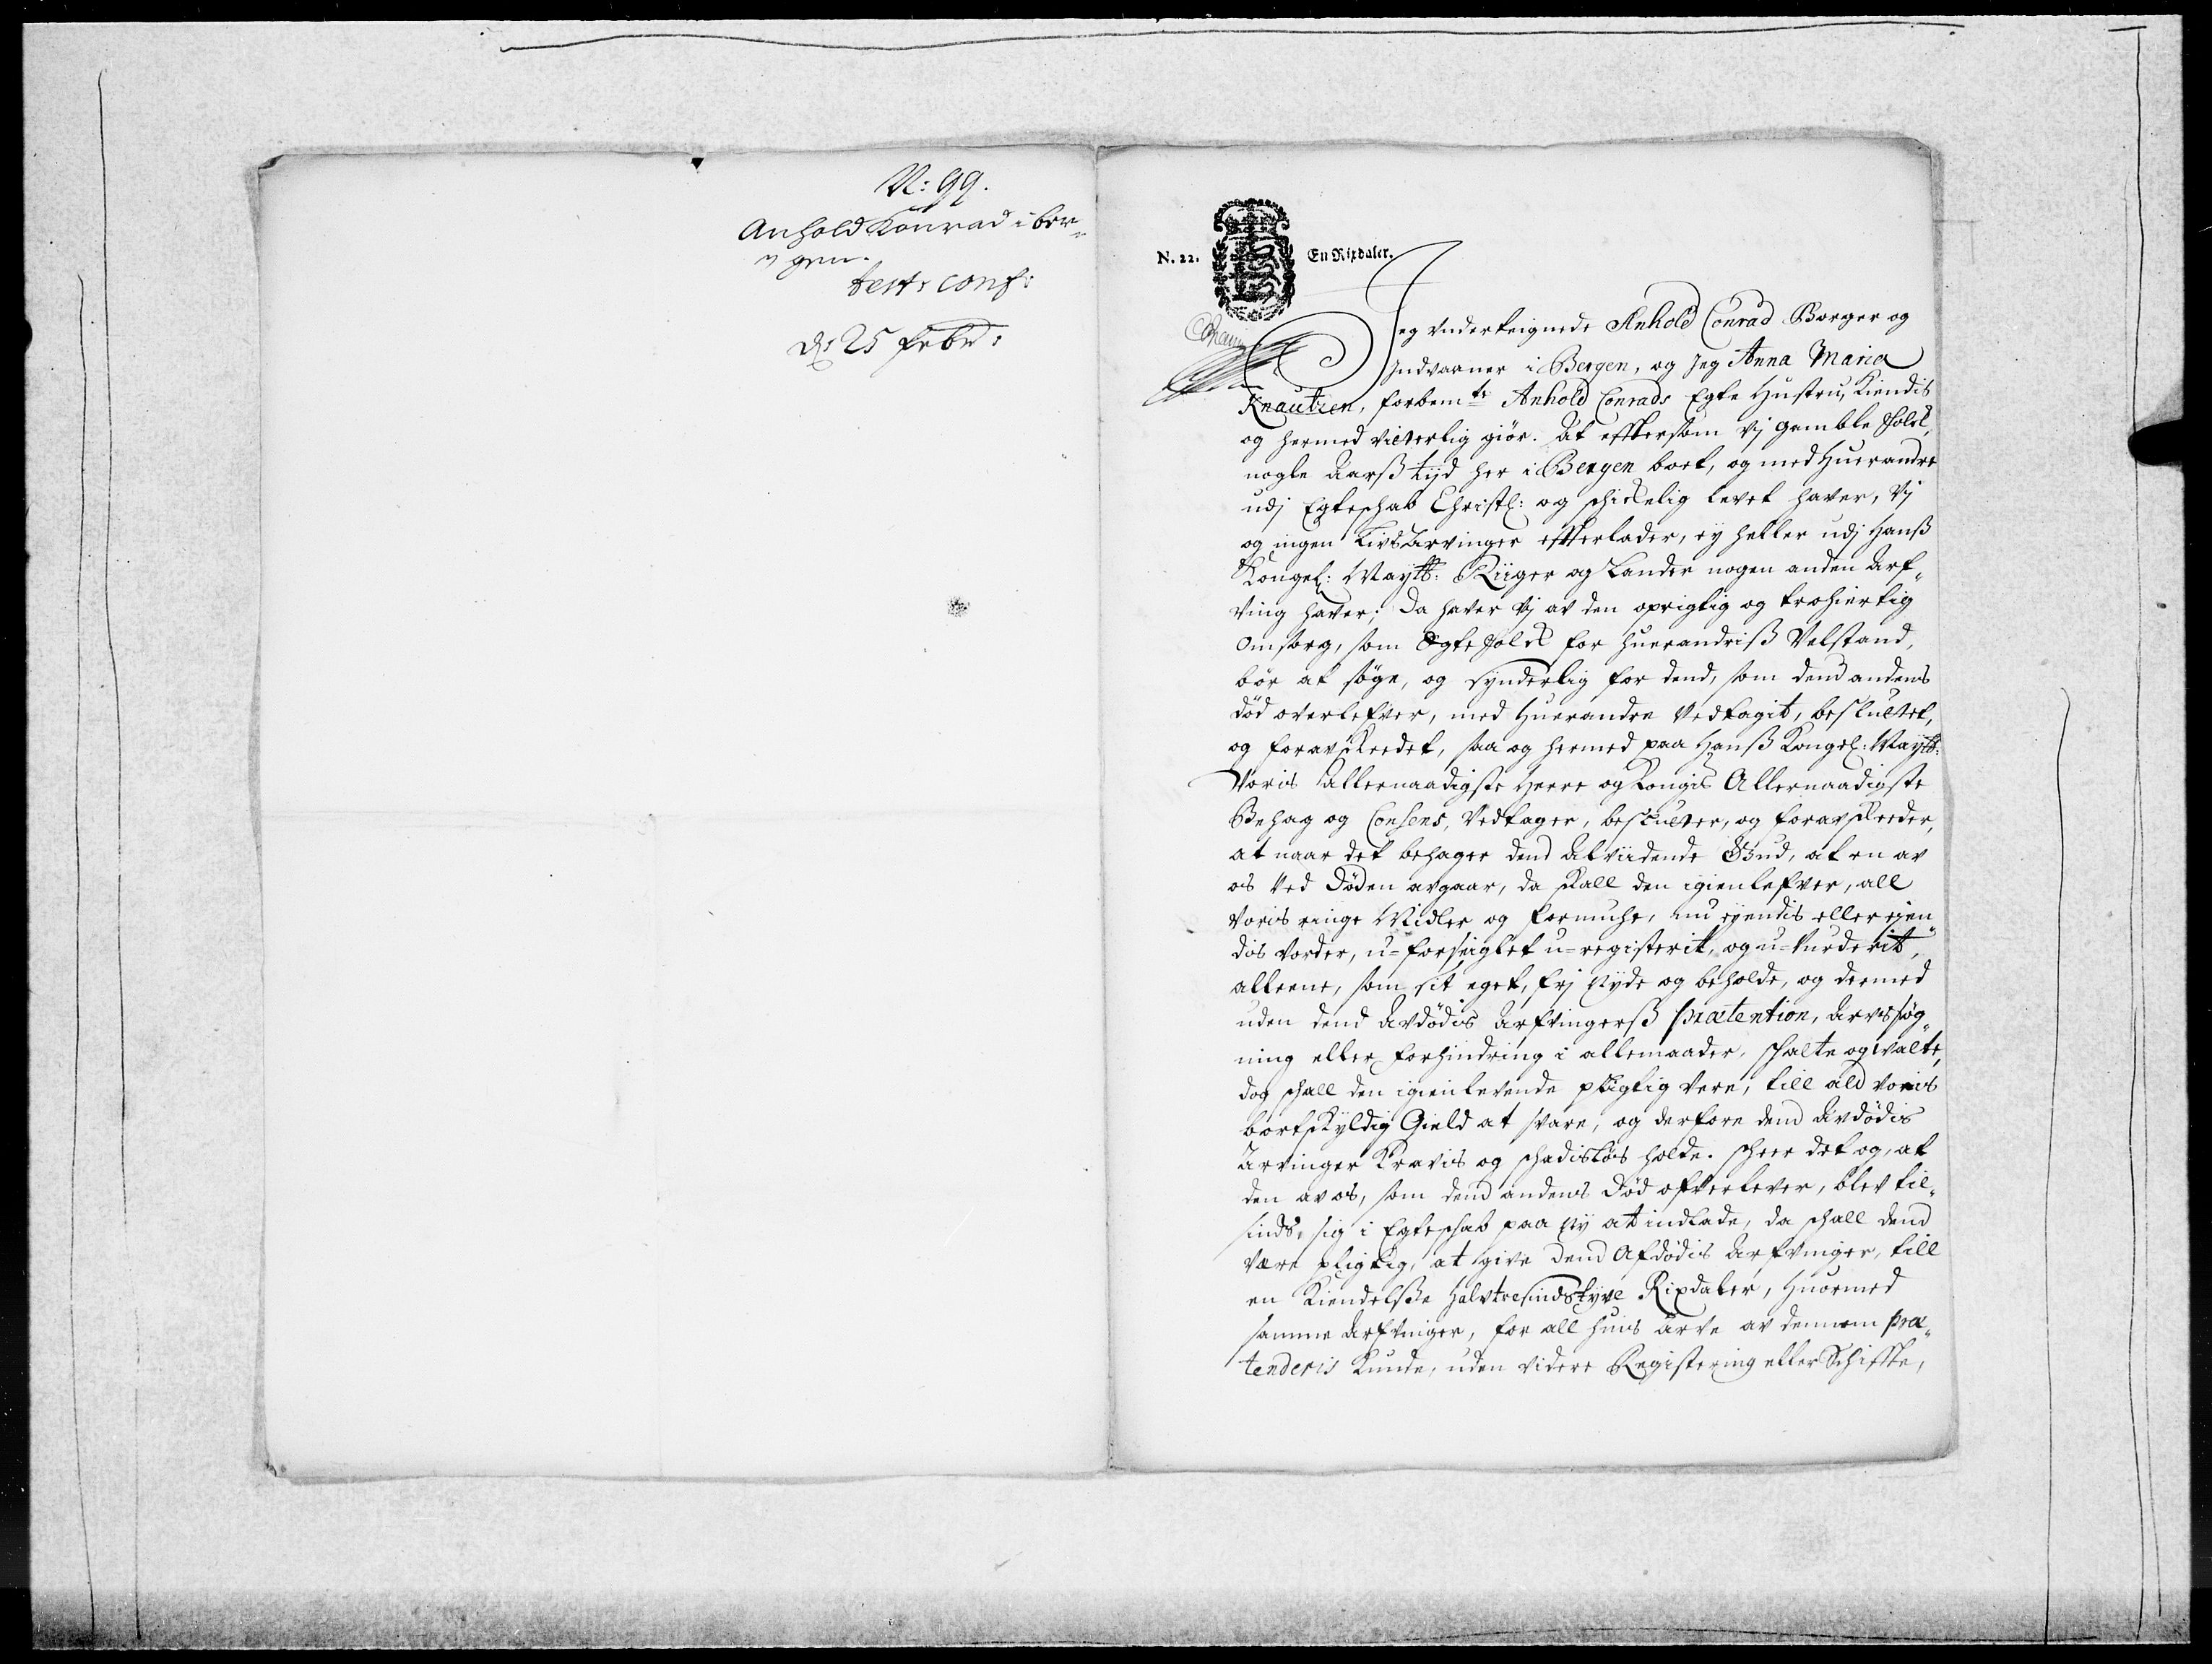 N: 99.
Anhold Konrad i ber-
gen.
test: conf:
d: 25 febr:
N. 22.
En Rixdaler.
Jeg underteignede Anhold Conrad Borger og
Indvaaner i Bergen, og Jeg Anna Maria
Knautzen, forbemte Anhold Conrads Egte Hustru, Kiendis
og hermed vitterlig giör. At effterssom Vj gamble Folck,
nogle Aarß tijd her i Bergen boet, og med Huerandre
udj Egteschab Christl: og schickelig levet haver, Vj
og ingen LivsArvinger effterlader, ey heller udj Hanß
Kongel: Maytts: Riiger og Lander nogen anden Arf-
ving haver; Da haver Vj av den oprigtig og trohiertig
omsorg, som Egtefolck for huerandriß Velstand,
bör at söge, og synderlig for dend, som dend andens
död overlefver, med Huerandre Vedtagit, besluttet,
og foravskeedet, saa og hermed paa Hanß Kongel: Maytts:
Voris Allernaadigste Herre og Kongis Allernaadigste
Behag og Consens, Vedtager, beslutter, og foravskeeder,
at naar det behager dend Alviidende Gud, at en av
os Ved Döden avgaar, da skall den igienlefver, all
Voris ringe Midler og formuhe, nu eyendis eller eyen-
dis vorder, u-forseiglet u-registerit, og u-vurderit,
alleene, som sit eget, frj Nyde og beholde, og dermed
uden dend Avdödis Arfvingerß prætention, Arvssög-
ning eller forhindring i allemaader, schalte og walte,
dog schall den igienlevende pligtig vere, till ald Voris
bortskyldig Gield at svare, og derfore dend Avdödis
Arvinger Kravis og schadislös holde. scheer det og, at
den av os, som dend andens Död ofverlever, blev til-
sinds, sig i Egteschab paa Ny at indlade, da schall dend
være pligtig, at give dend Afdödis Arfvinger, till
en Kiendelsße Halvtresindstyve Rixdaler, Huormed
samme Arfvinger, for all huis arve av dennem præ-
tenderis kunde, uden videre Registering eller Schiffte,